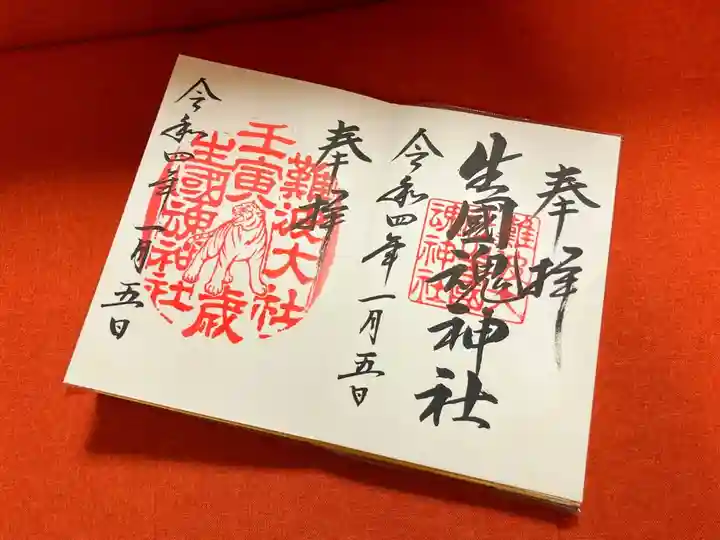 奉拝
生國魂神社
難波大社
生國魂神社
令和四年一月五日
奉拝
難波大社
壬寅歳
生國魂神社
令和四年一月五日